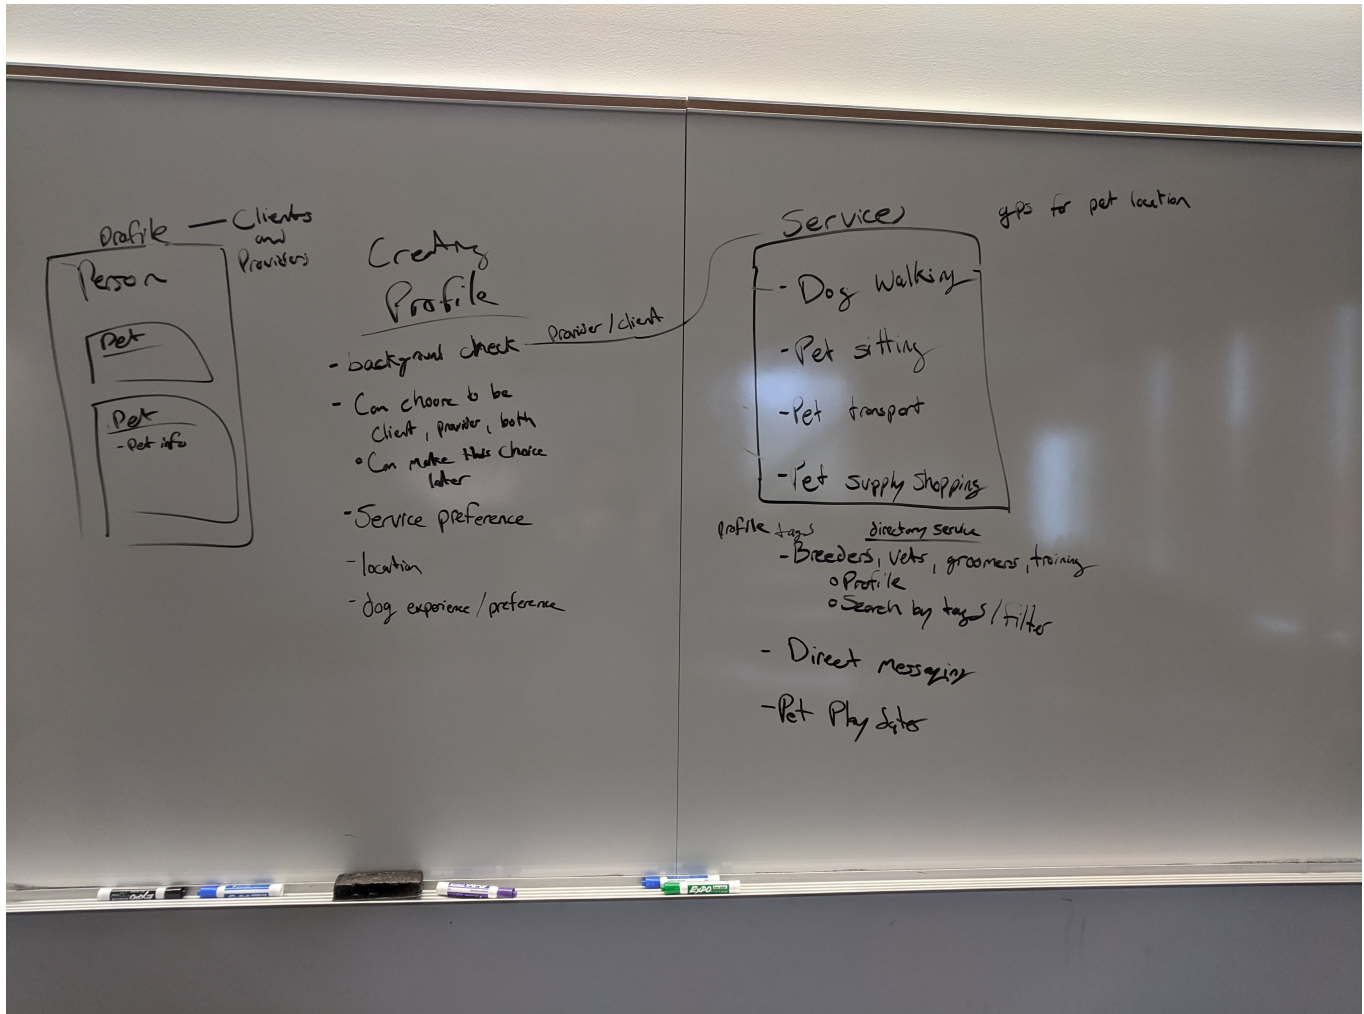 Profile — Clients
and
Providers
Person
Pet
Pet
- Pet info
Creating
Profile
- background check
Provider / client
- Can choose to be
client, provider, both
o Can make this choice
later
- Service preference
- location
- dog experience / preference
Services
gps for pet location
- Dog Walking
- Pet sitting
- Pet transport
- Pet supply shopping
profile tags
directory service
- Breeders, vets, groomers, training
o Profile
o Search by tags / filter
- Direct messaging
- Pet Play dates
EXPO
EXPO